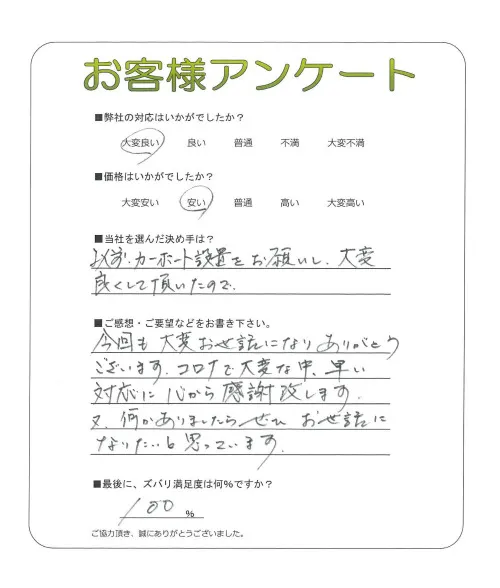 お客様アンケート
■弊社の対応はいかがでしたか？
大変良い 良い 普通 不満 大変不満
■価格はいかがでしたか？
大変安い 安い 普通 高い 大変高い
■当社を選んだ決め手は？
以前、カーポート設置をお願いし、大変
良くして頂いたので、
■ご感想・ご要望などをお書き下さい。
今回も大変お世話になりありがとう
ございます。コロナで大変な中、早い
対応に心から感謝致します。
又、何かありましたらぜひお世話に
なりたいと思っています。
■最後に、ズバリ満足度は何％ですか？
100 %
ご協力頂き、誠にありがとうございました。